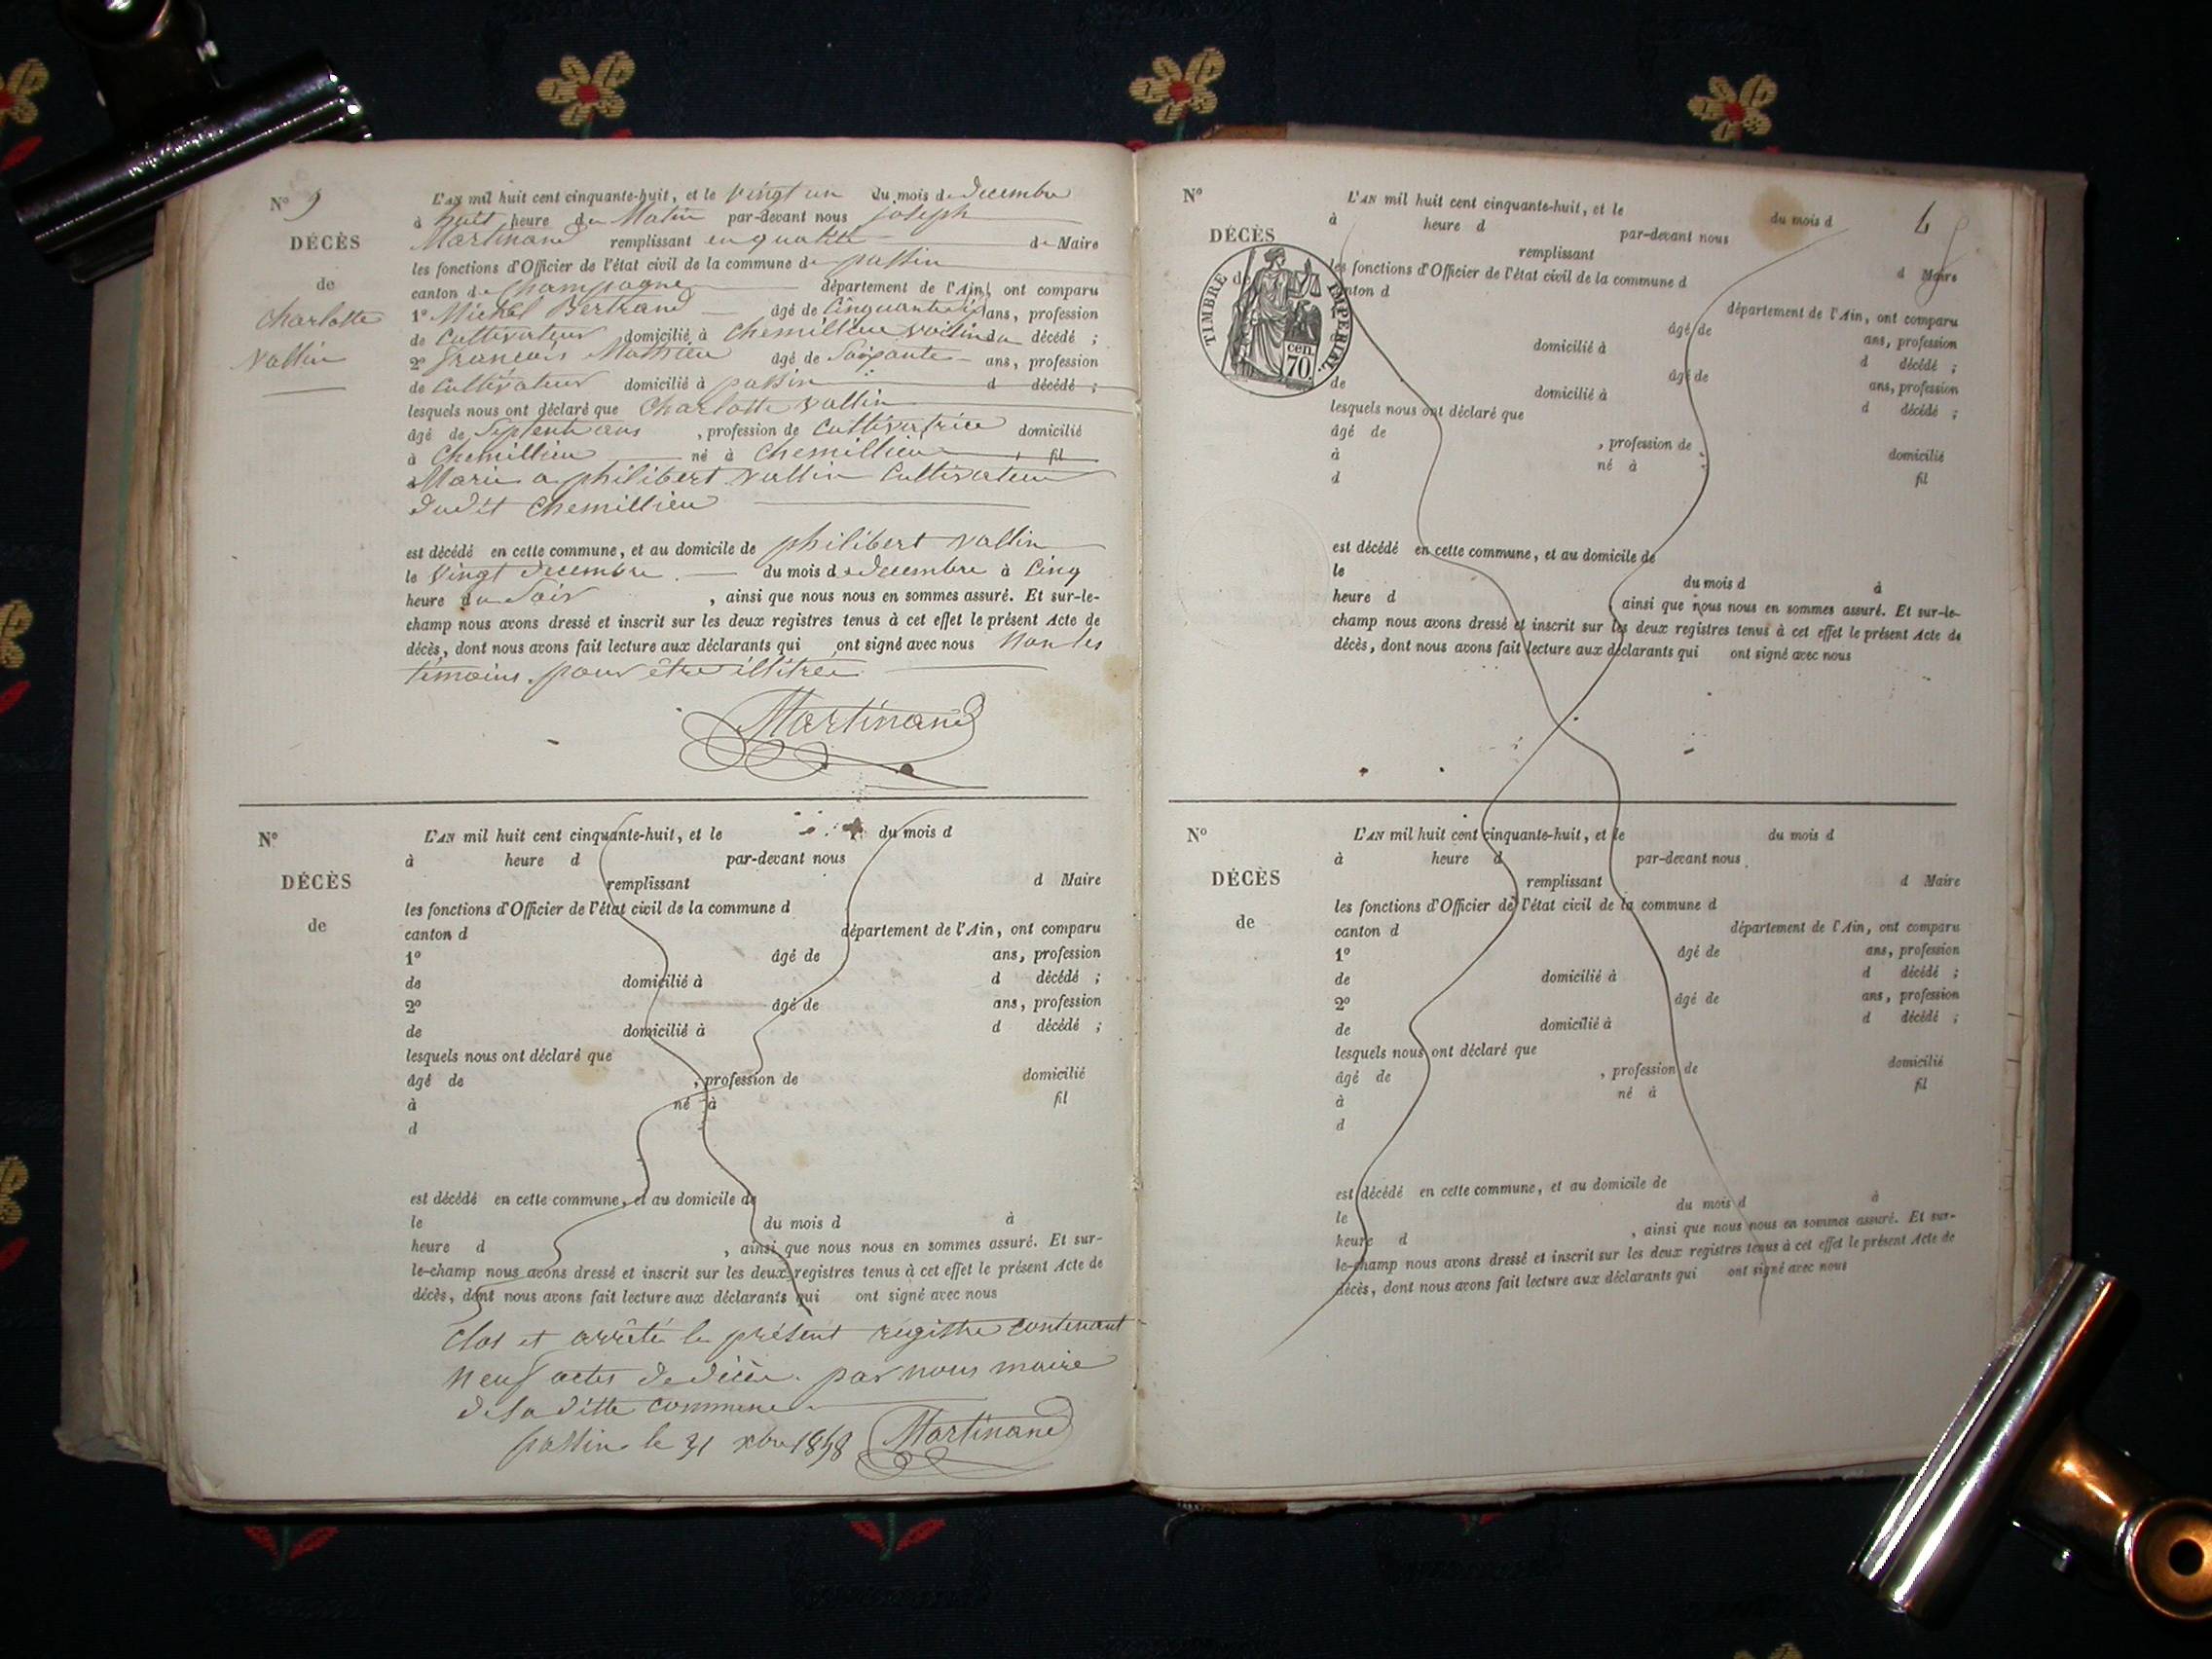 N° 9
DÉCÈS
de
Charlotte
Vallin
L'AN mil huit cent cinquante-huit, et le Vingt un du mois de Decembre
à huit heure du Matin par-devant nous joseph
Martinand remplissant en qualité de Maire
les fonctions d'Officier de l'état civil de la commune de passin
canton de Champagne département de l'Ain, ont comparu
1° Michel Bertrand âgé de Cinquante six ans, profession
de Cultivateur domicilié à Chemillieu voisin du décédé ;
2° françois Mathieu âgé de Soixante ans, profession
de Cultivateur domicilié à passin d décédé ;
lesquels nous ont déclaré que Charlotte vallin
âgé de Septente ans , profession de Cultivatrice domicilié
à Chemillieu né à Chemillieu , fil
Marie a philibert vallin Cultivateur
dudit Chemillieu
est décédé en cette commune, et au domicile de philibert vallin
le Vingt decembre du mois de decembre à Cinq
heure du Soir , ainsi que nous nous en sommes assuré. Et sur-le-
champ nous avons dressé et inscrit sur les deux registres tenus à cet effet le présent Acte de
décès, dont nous avons fait lecture aux déclarants qui ont signé avec nous Non les
témoins pour être illitrée
Martinand
N°
DÉCÈS
de
L'AN mil huit cent cinquante-huit, et le du mois d
à heure d par-devant nous
remplissant d Maire
les fonctions d'Officier de l'état civil de la commune d
canton d département de l'Ain, ont comparu
1° âgé de ans, profession
de domicilié à d décédé ;
2° âgé de ans, profession
de domicilié à d décédé ;
lesquels nous ont déclaré que
âgé de , profession de domicilié
à né à fil
d
est décédé en cette commune, et au domicile de
le du mois d à
heure d , ainsi que nous nous en sommes assuré. Et sur-
le-champ nous avons dressé et inscrit sur les deux registres tenus à cet effet le présent Acte de
décès, dont nous avons fait lecture aux déclarants qui ont signé avec nous
Clos et arrêté le présent régistre contenant
neuf actes de décès par nous maire
de la ditte commune
passin le 31 xbre 1858 Martinand
N°
DÉCÈS
de
TIMBRE IMPERIAL
70 cen.
L'AN mil huit cent cinquante-huit, et le du mois d
à heure d par-devant nous
remplissant d Maire
les fonctions d'Officier de l'état civil de la commune d
canton d département de l'Ain, ont comparu
âgé de ans, profession
domicilié à d décédé ;
âgé de ans, profession
de domicilié à d décédé ;
lesquels nous ont déclaré que
âgé de , profession de domicilié
à né à fil
d
est décédé en cette commune, et au domicile de
le du mois d à
heure d , ainsi que nous nous en sommes assuré. Et sur-le-
champ nous avons dressé et inscrit sur les deux registres tenus à cet effet le présent Acte de
décès, dont nous avons fait lecture aux déclarants qui ont signé avec nous
N°
DÉCÈS
de
L'AN mil huit cent cinquante-huit, et le du mois d
à heure d par-devant nous
remplissant d Maire
les fonctions d'Officier de l'état civil de la commune d
canton d département de l'Ain, ont comparu
1° âgé de ans, profession
de domicilié à d décédé ;
2° âgé de ans, profession
de domicilié à d décédé ;
lesquels nous ont déclaré que
âgé de , profession de domicilié
à né à fil
d
est décédé en cette commune, et au domicile de
le du mois d à
heure d , ainsi que nous nous en sommes assuré. Et sur-
le-champ nous avons dressé et inscrit sur les deux registres tenus à cet effet le présent Acte de
décès, dont nous avons fait lecture aux déclarants qui ont signé avec nous